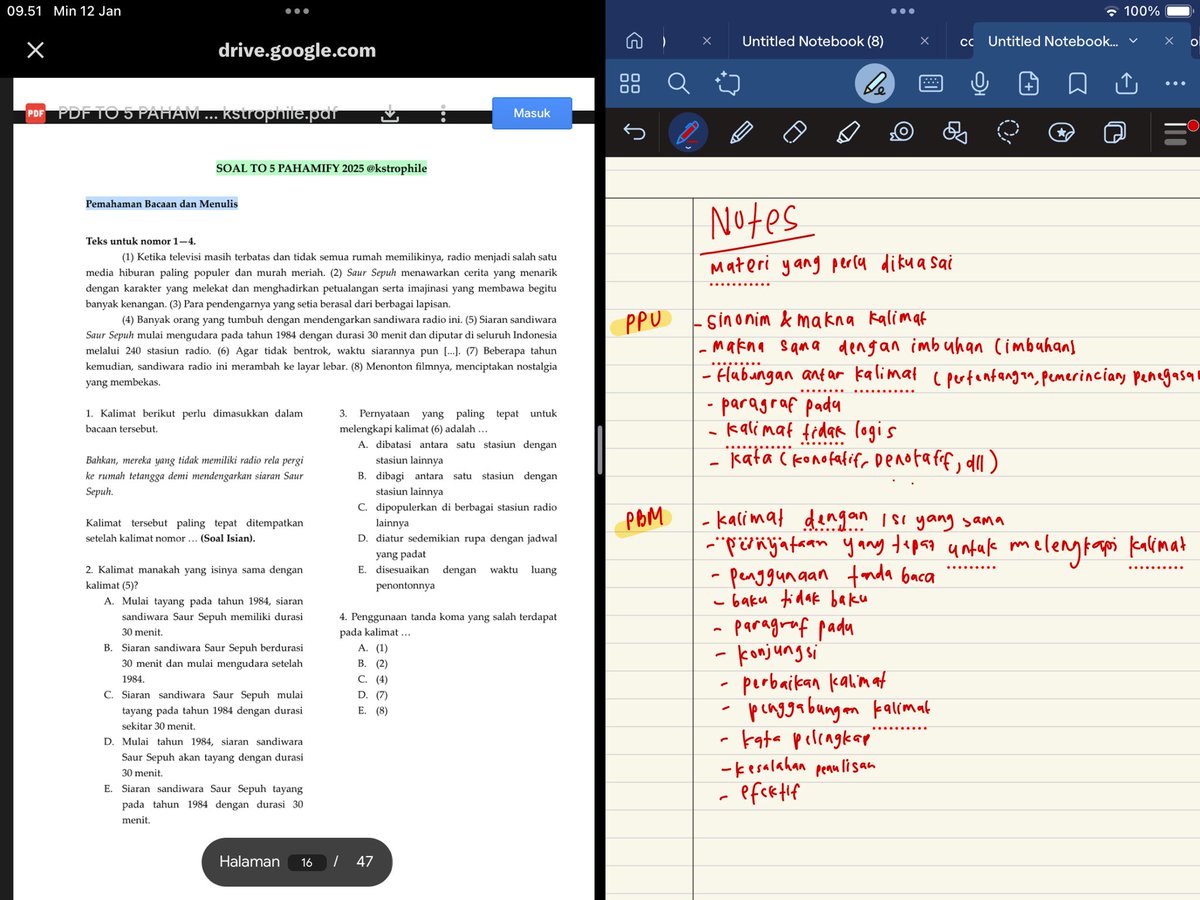 09.51 Min 12 Jan
100%
drive.google.com
PDF
PDF TO 5 PAHAM ... kstrophile.pdf
Masuk
SOAL TO 5 PAHAMIFY 2025 @kstrophile
Pemahaman Bacaan dan Menulis
Teks untuk nomor 1—4.
(1) Ketika televisi masih terbatas dan tidak semua rumah memilikinya, radio menjadi salah satu
media hiburan paling populer dan murah meriah. (2) Saur Sepuh menawarkan cerita yang menarik
dengan karakter yang melekat dan menghadirkan petualangan serta imajinasi yang membawa begitu
banyak kenangan. (3) Para pendengarnya yang setia berasal dari berbagai lapisan.
(4) Banyak orang yang tumbuh dengan mendengarkan sandiwara radio ini. (5) Siaran sandiwara
Saur Sepuh mulai mengudara pada tahun 1984 dengan durasi 30 menit dan diputar di seluruh Indonesia
melalui 240 stasiun radio. (6) Agar tidak bentrok, waktu siarannya pun [...]. (7) Beberapa tahun
kemudian, sandiwara radio ini merambah ke layar lebar. (8) Menonton filmnya, menciptakan nostalgia
yang membekas.
1. Kalimat berikut perlu dimasukkan dalam
bacaan tersebut.
Bahkan, mereka yang tidak memiliki radio rela pergi
ke rumah tetangga demi mendengarkan siaran Saur
Sepuh.
Kalimat tersebut paling tepat ditempatkan
setelah kalimat nomor ... (Soal Isian).
2. Kalimat manakah yang isinya sama dengan
kalimat (5)?
A. Mulai tayang pada tahun 1984, siaran
sandiwara Saur Sepuh memiliki durasi
30 menit.
B. Siaran sandiwara Saur Sepuh berdurasi
30 menit dan mulai mengudara setelah
1984.
C. Siaran sandiwara Saur Sepuh mulai
tayang pada tahun 1984 dengan durasi
sekitar 30 menit.
D. Mulai tahun 1984, siaran sandiwara
Saur Sepuh akan tayang dengan durasi
30 menit.
E. Siaran sandiwara Saur Sepuh tayang
pada tahun 1984 dengan durasi 30
menit.
3. Pernyataan yang paling tepat untuk
melengkapi kalimat (6) adalah ...
A. dibatasi antara satu stasiun dengan
stasiun lainnya
B. dibagi antara satu stasiun dengan
stasiun lainnya
C. dipopulerkan di berbagai stasiun radio
lainnya
D. diatur sedemikian rupa dengan jadwal
yang padat
E. disesuaikan dengan waktu luang
penontonnya
4. Penggunaan tanda koma yang salah terdapat
pada kalimat ...
A. (1)
B. (2)
C. (4)
D. (7)
E. (8)
Halaman 16 / 47
Untitled Notebook (8)
Untitled Notebook...
Notes
Materi yang perlu dikuasai
PPU
- sinonim & makna kalimat
- makna sama dengan imbuhan (imbuhan)
- Hubungan antar kalimat (pertentangan, pemerincian, penegasan
- paragraf padu
- kalimat tidak logis
- kata (konotatif, Denotatif, dll)
PBM
- kalimat dengan isi yang sama
- pernyataan yang tepat untuk melengkapi kalimat
- penggunaan tanda baca
- baku tidak baku
- paragraf padu
- konjungsi
- perbaikan kalimat
- penggabungan kalimat
- kata pelengkap
- kesalahan penulisan
- efektif